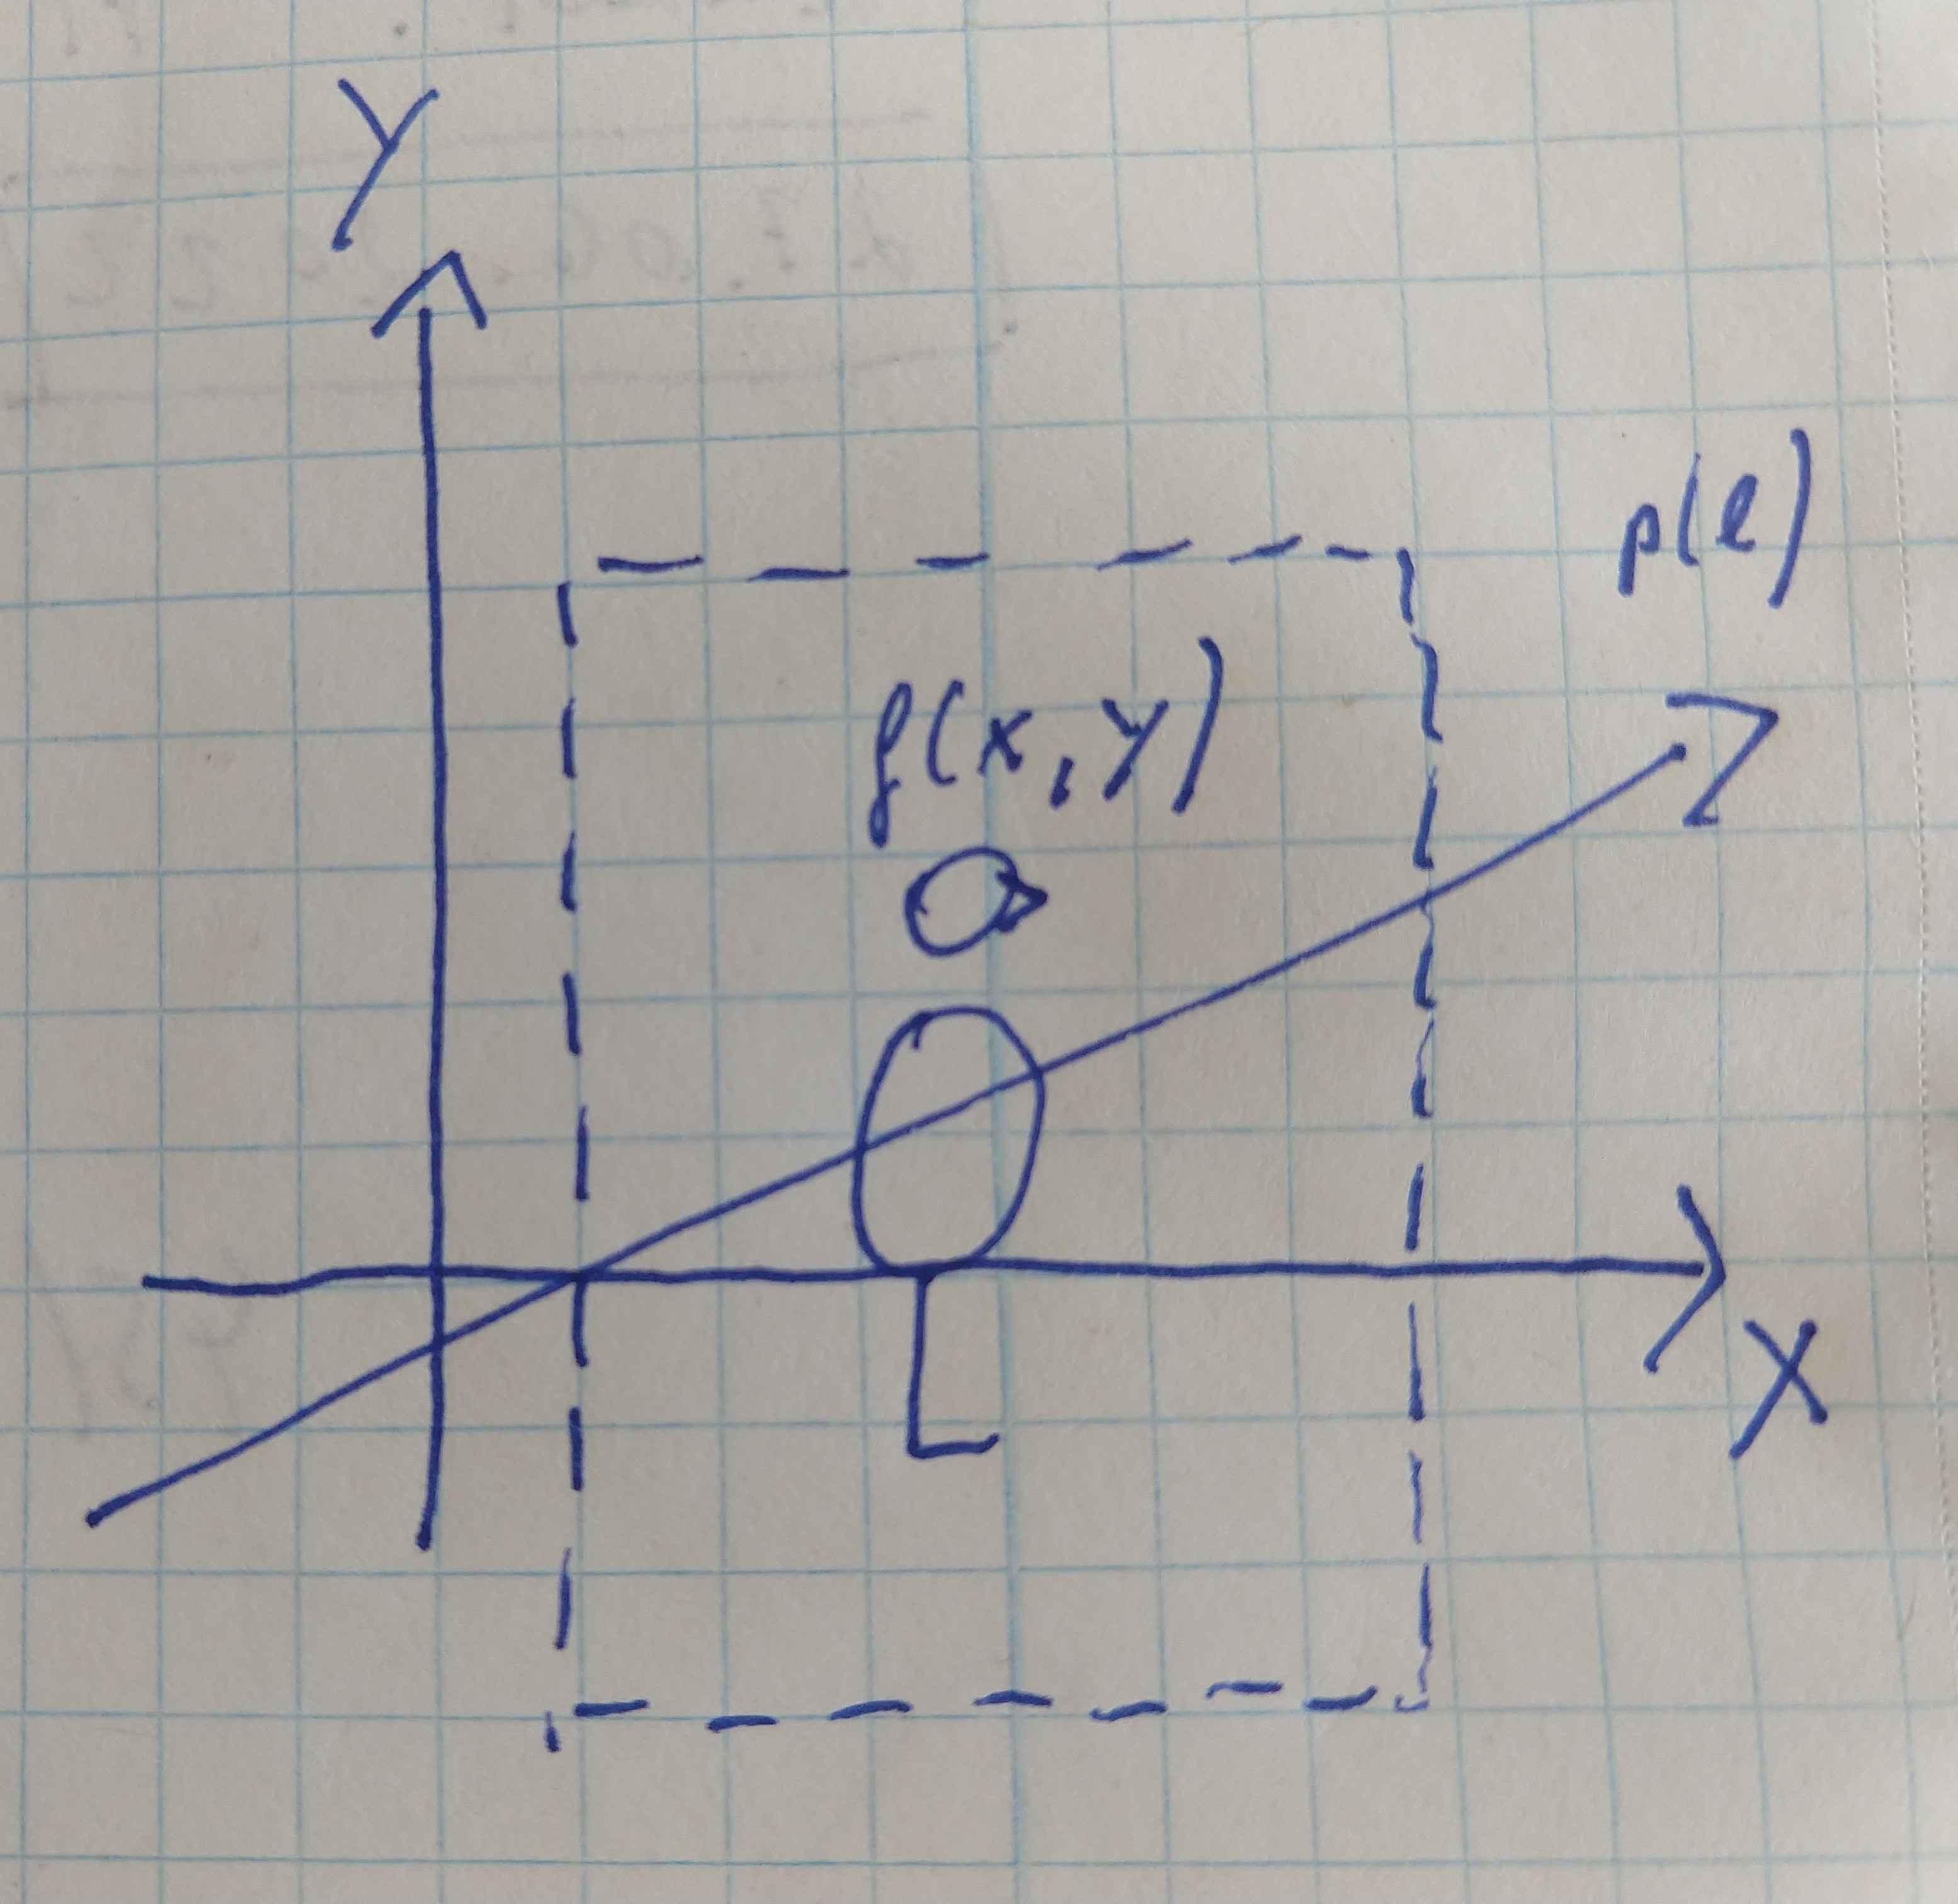 Y
p(l)
f(x,y)
X